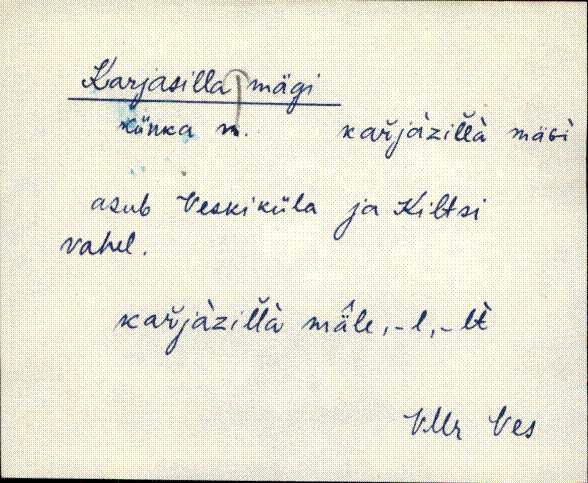 Karjasilla mägi
künka n. kařjàzil̆l̆à mäɢì
asub Veskiküla ja Kiltsi
vahel.
kařjàzil̆l̆à mä̂le, -l, -lt̀
VMr Ves